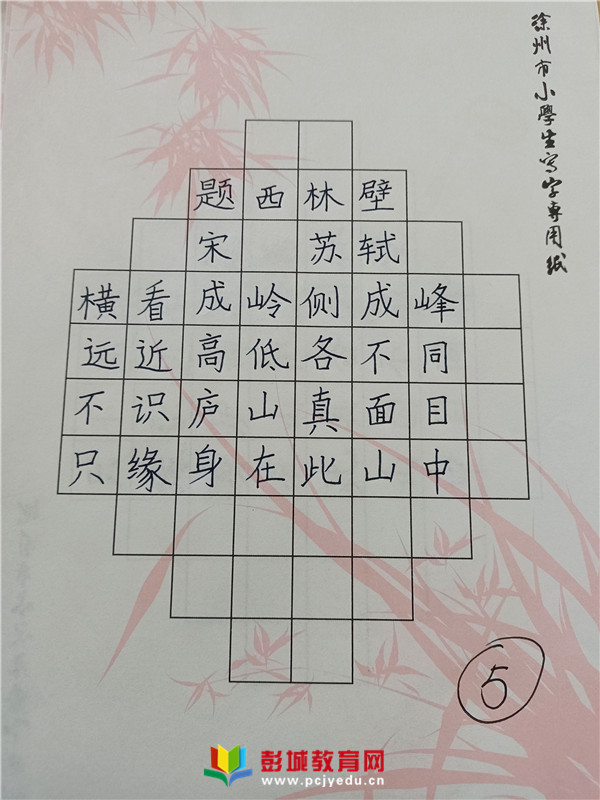 徐州市小學生寫字專用紙
题西林壁
宋 苏轼
横看成岭侧成峰
远近高低各不同
不识庐山真面目
只缘身在此山中
5
彭城教育网
www.pcjyedu.cn